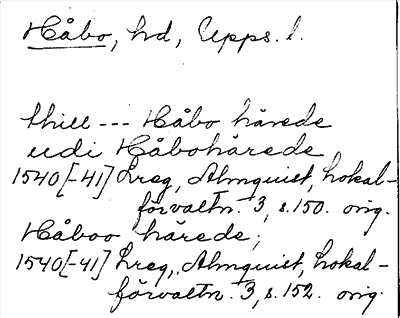 Håbo, hd, Upps. l.
thill --- Håbo härede
udi Håbohärede
1540[-41] Lreg, Almquist, Lokal-
förvaltn. 3, s. 150. orig.
Håboo härede;
1540[-41] Lreg, Almquist, Lokal-
förvaltn. 3, s. 152. orig.